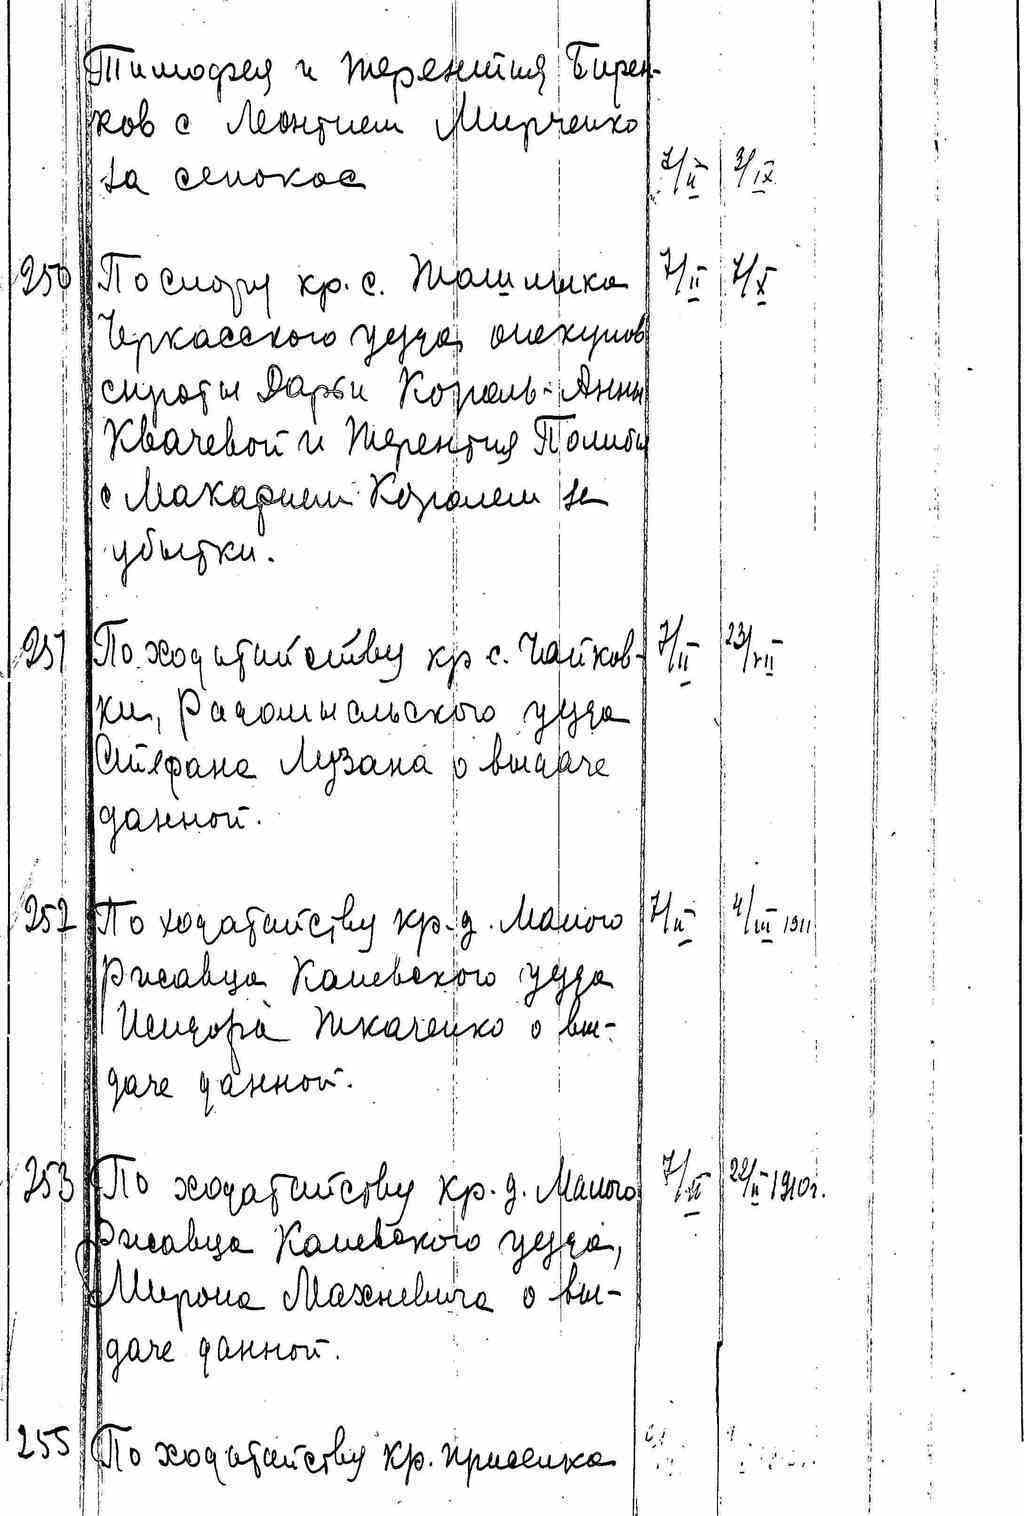 Тимофея и Терентия Бирен-
ков с Леонтием Мирченко
за сенокос 7/II 3/IX
250 По спору кр. с. Ташлыка 7/II 7/X
Черкасского уезда опекунов
сироты Дарьи Король - Анны
Квачевой и Терентия
с Макарием Королем за
убытки.
251 По ходатайству кр с. Чайков- 7/II 23/VII
ки, Радомысльского уезда
Стефана Лузана о выдаче
данной.
252 По ходатайству кр. д. Малого 7/II 4/III 1911
Ржавца Каневского уезда
Исидора Ткаченко о вы-
даче данной.
253 По ходатайству кр. д. Малого 7/II 22/II 1910г.
Ржавца Каневского уезда,
Мирона Махневича о вы-
даче данной.
255 По ходатайству кр. приселка